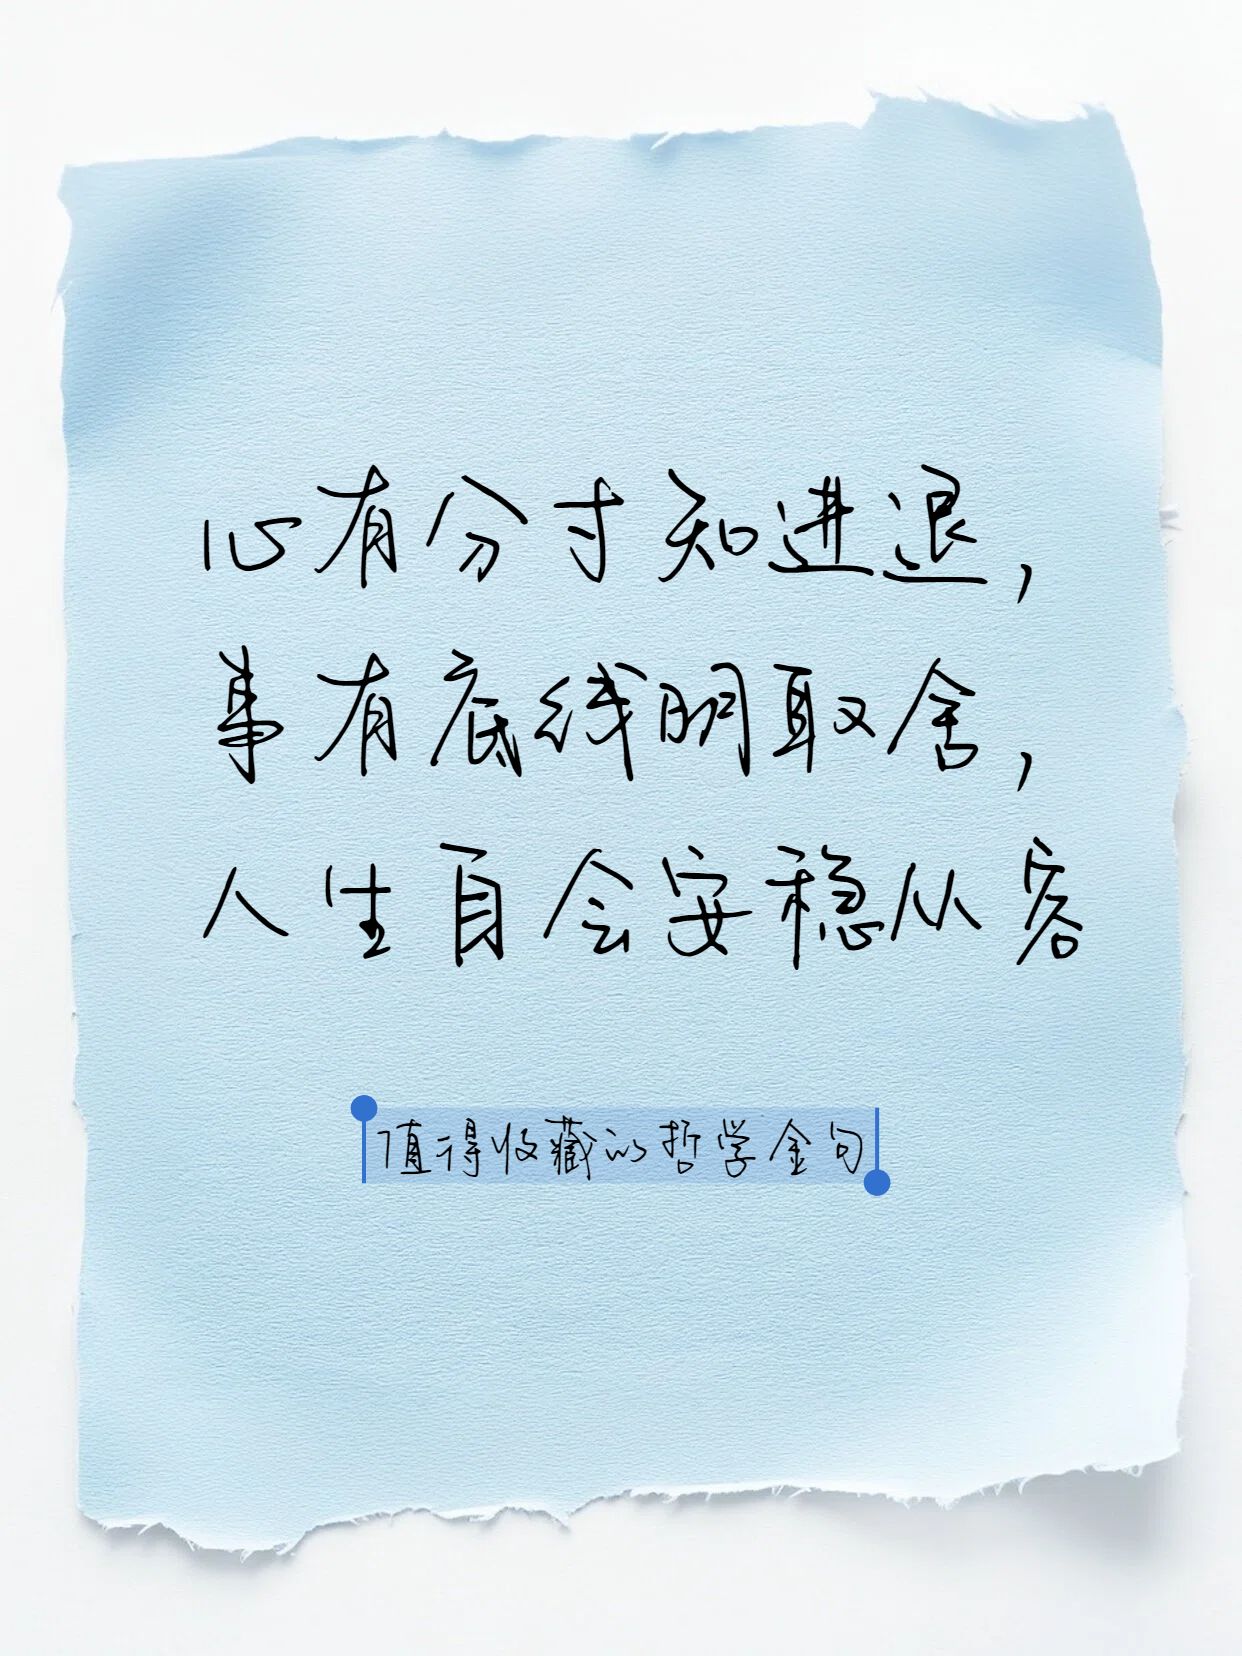 心有分寸知进退，
事有底线明取舍，
人生自会安稳从容
值得收藏的哲学金句